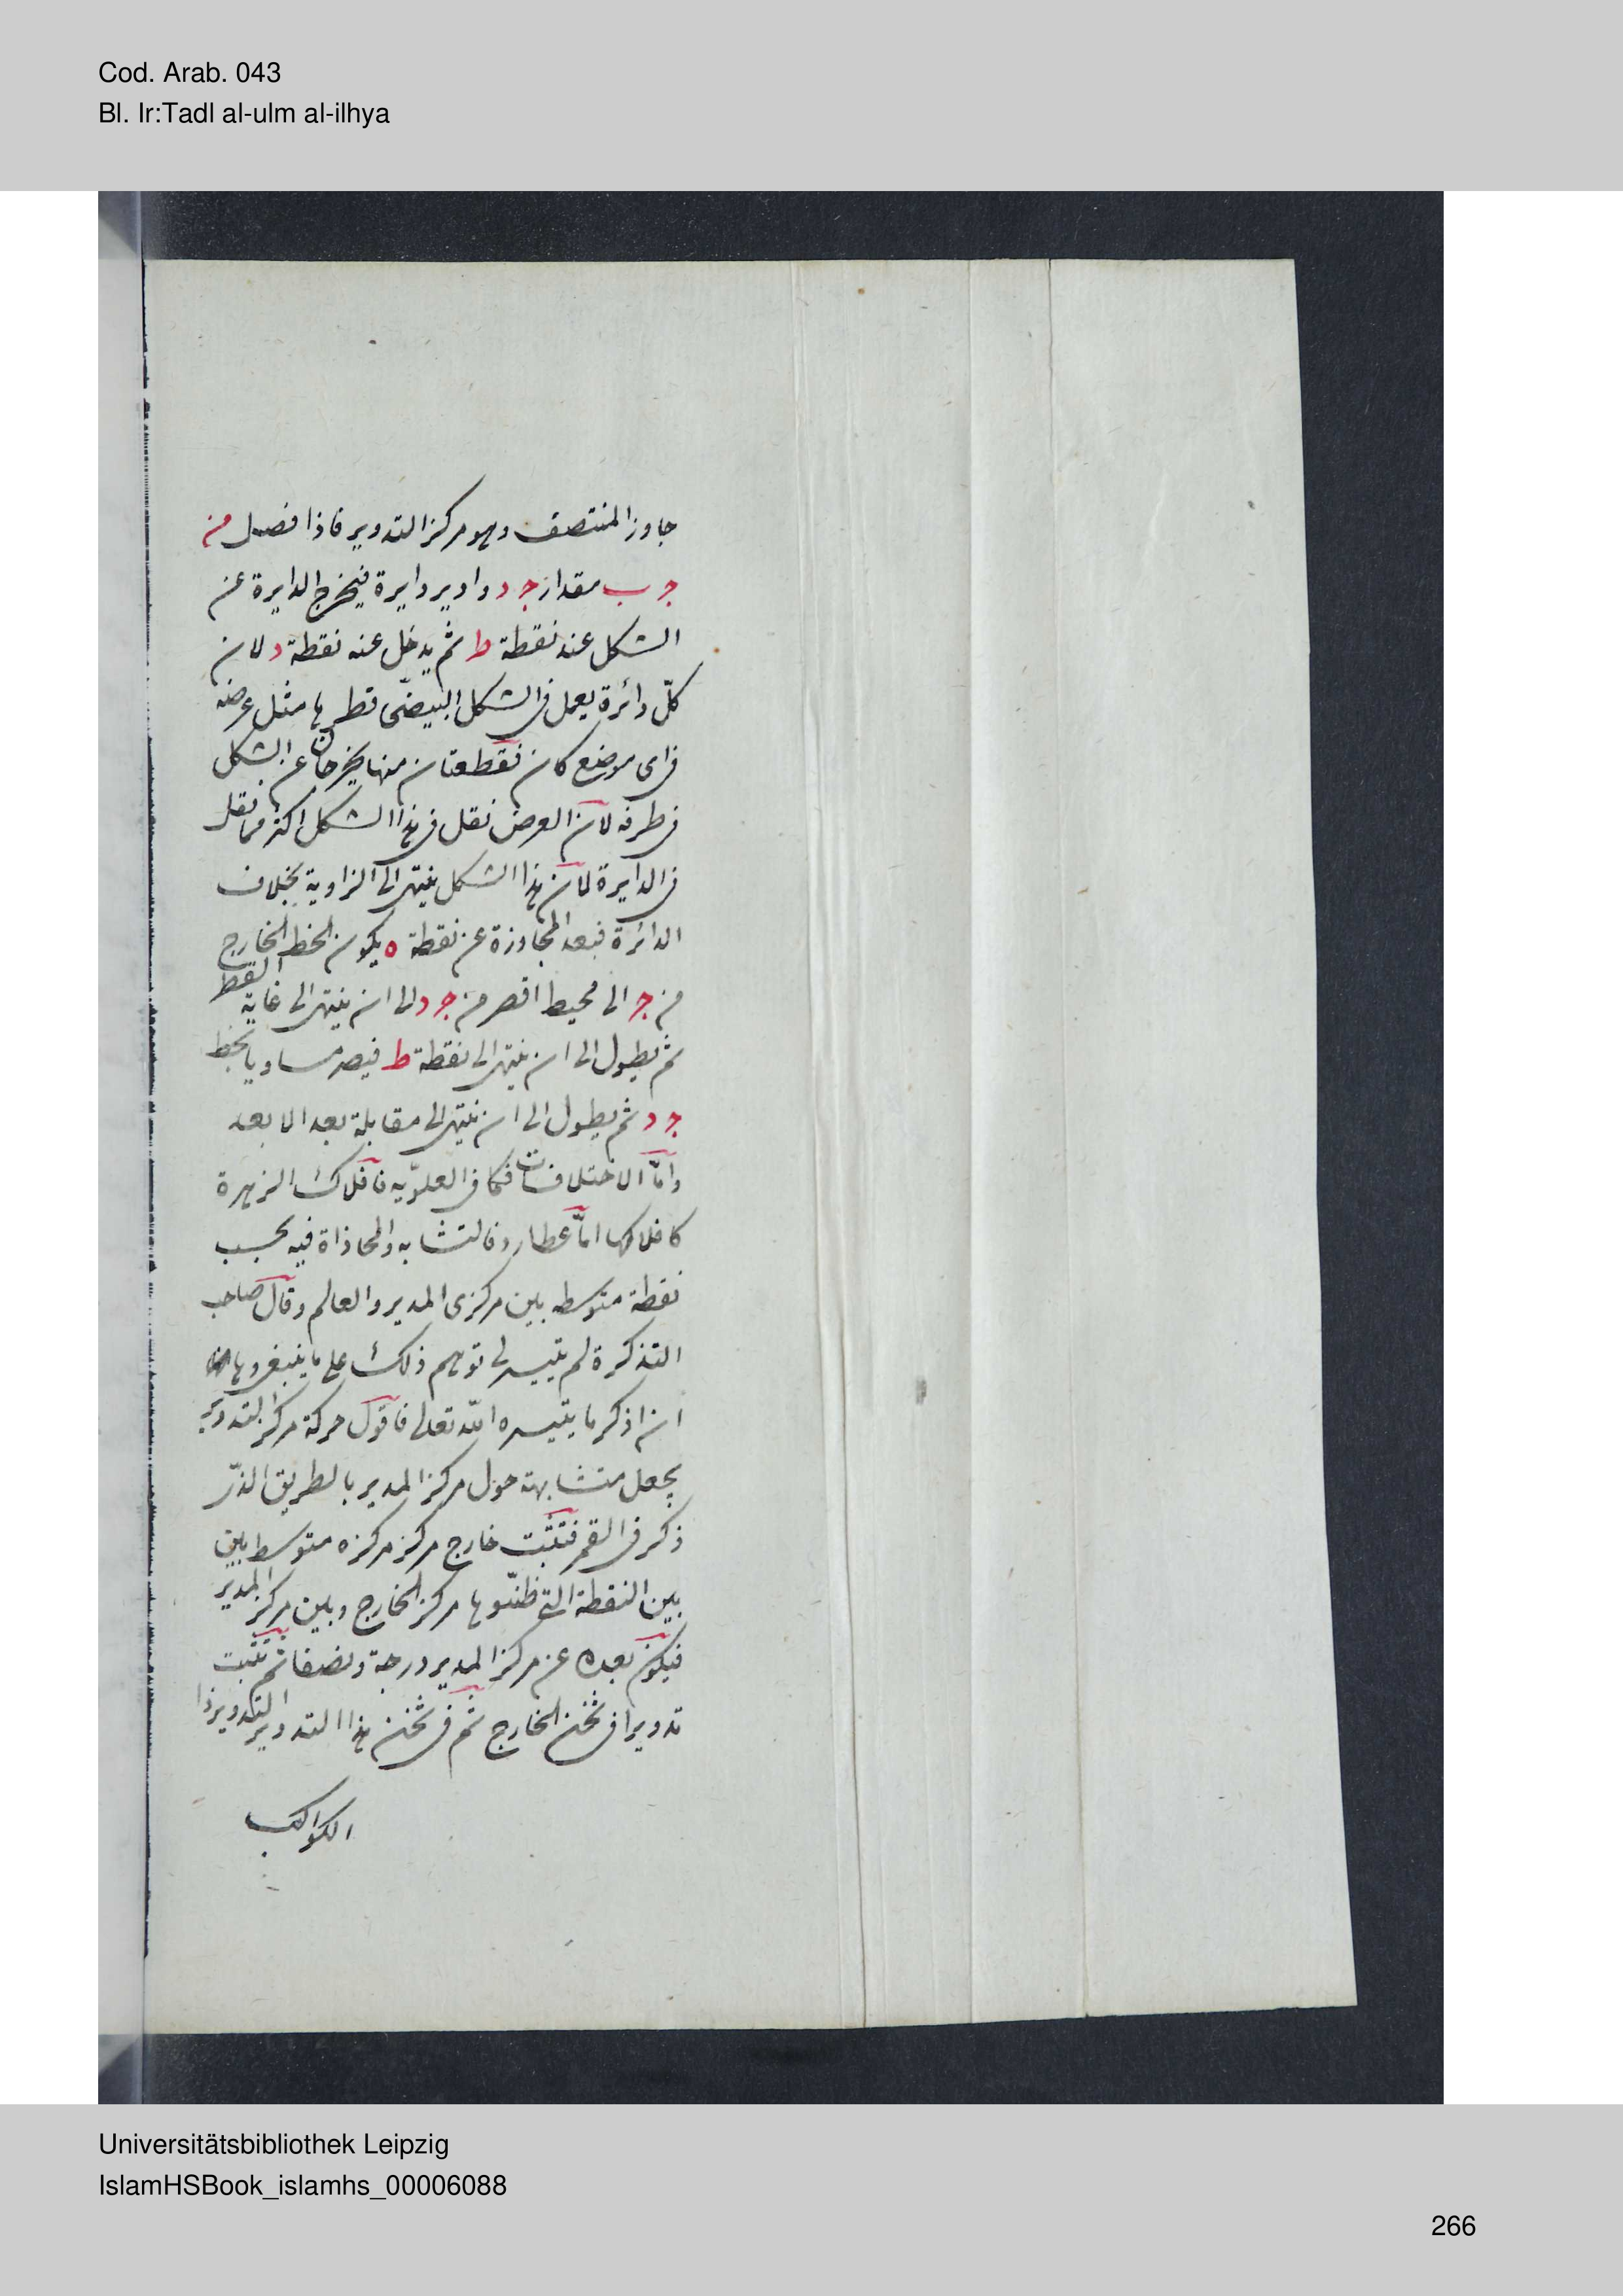 Cod. Arab. 043
Bl. Ir:Tadl al-ulm al-ilhya
جاوز المنتصف وهو مركز التدوير فاذا فصل من
ج ب مقدار ج د وادير دايرة فيخرج الدايرة عن
الشكل عند نقطة ط ثم يدخل عند نقطة د لان
كلّ دائرة يعمل فى الشكل البيضّى قطرها مثل عرضه
فى اى موضع كان فقطعتان منها يخرجان عن الشكل
فى طرفه لان العرض نقل فى هذا الشكل اكثر مما نقل
فى الدايرة لان هذا الشكل ينتهى الى الزاوية بخلاف
الدائرة فبعد المجاوزة عن نقطة ه يكون الخط الخارج
من ج الى محيط اقصر من ج د الى ان ينتهى الى غاية القصر
ثم يطول الى ان ينتهى الى نقطة ط فيصر مساويا بخط
ج د ثم يطول الى ان ينتهى الى مقابلة بعد الابعد
وامّا الاختلافات فكما فى العلويّه فافلاك الزهرة
كافلاكها امّا عطارد فالتشابه والمحاذاة فيه بحسب
نقطة متوسطه بين مركزى المدير والعالم وقال صاحب
التذكرة لم يتيسر لى توهم ذلك على ما ينبغى وها انا
ان اذكر ما يتيسره الله تعالى فاقول حركة مركز التدوير
يجعل متشابهة حول مركز المدير بالطريق الذى
ذكر فى القمر فتثبت خارج مركز مركزه متوسط بين
بين النقطة التى ظنّوها مركز الخارج وبين مركز المدير
فيكون بعده عن مركز المدير درجة ونصفا ثم تثبت
تدويرا فى ثخن الخارج ثم فى ثخن هذا التدوير التدوير ذا
الكواكب
Universitätsbibliothek Leipzig
IslamHSBook_islamhs_00006088
266